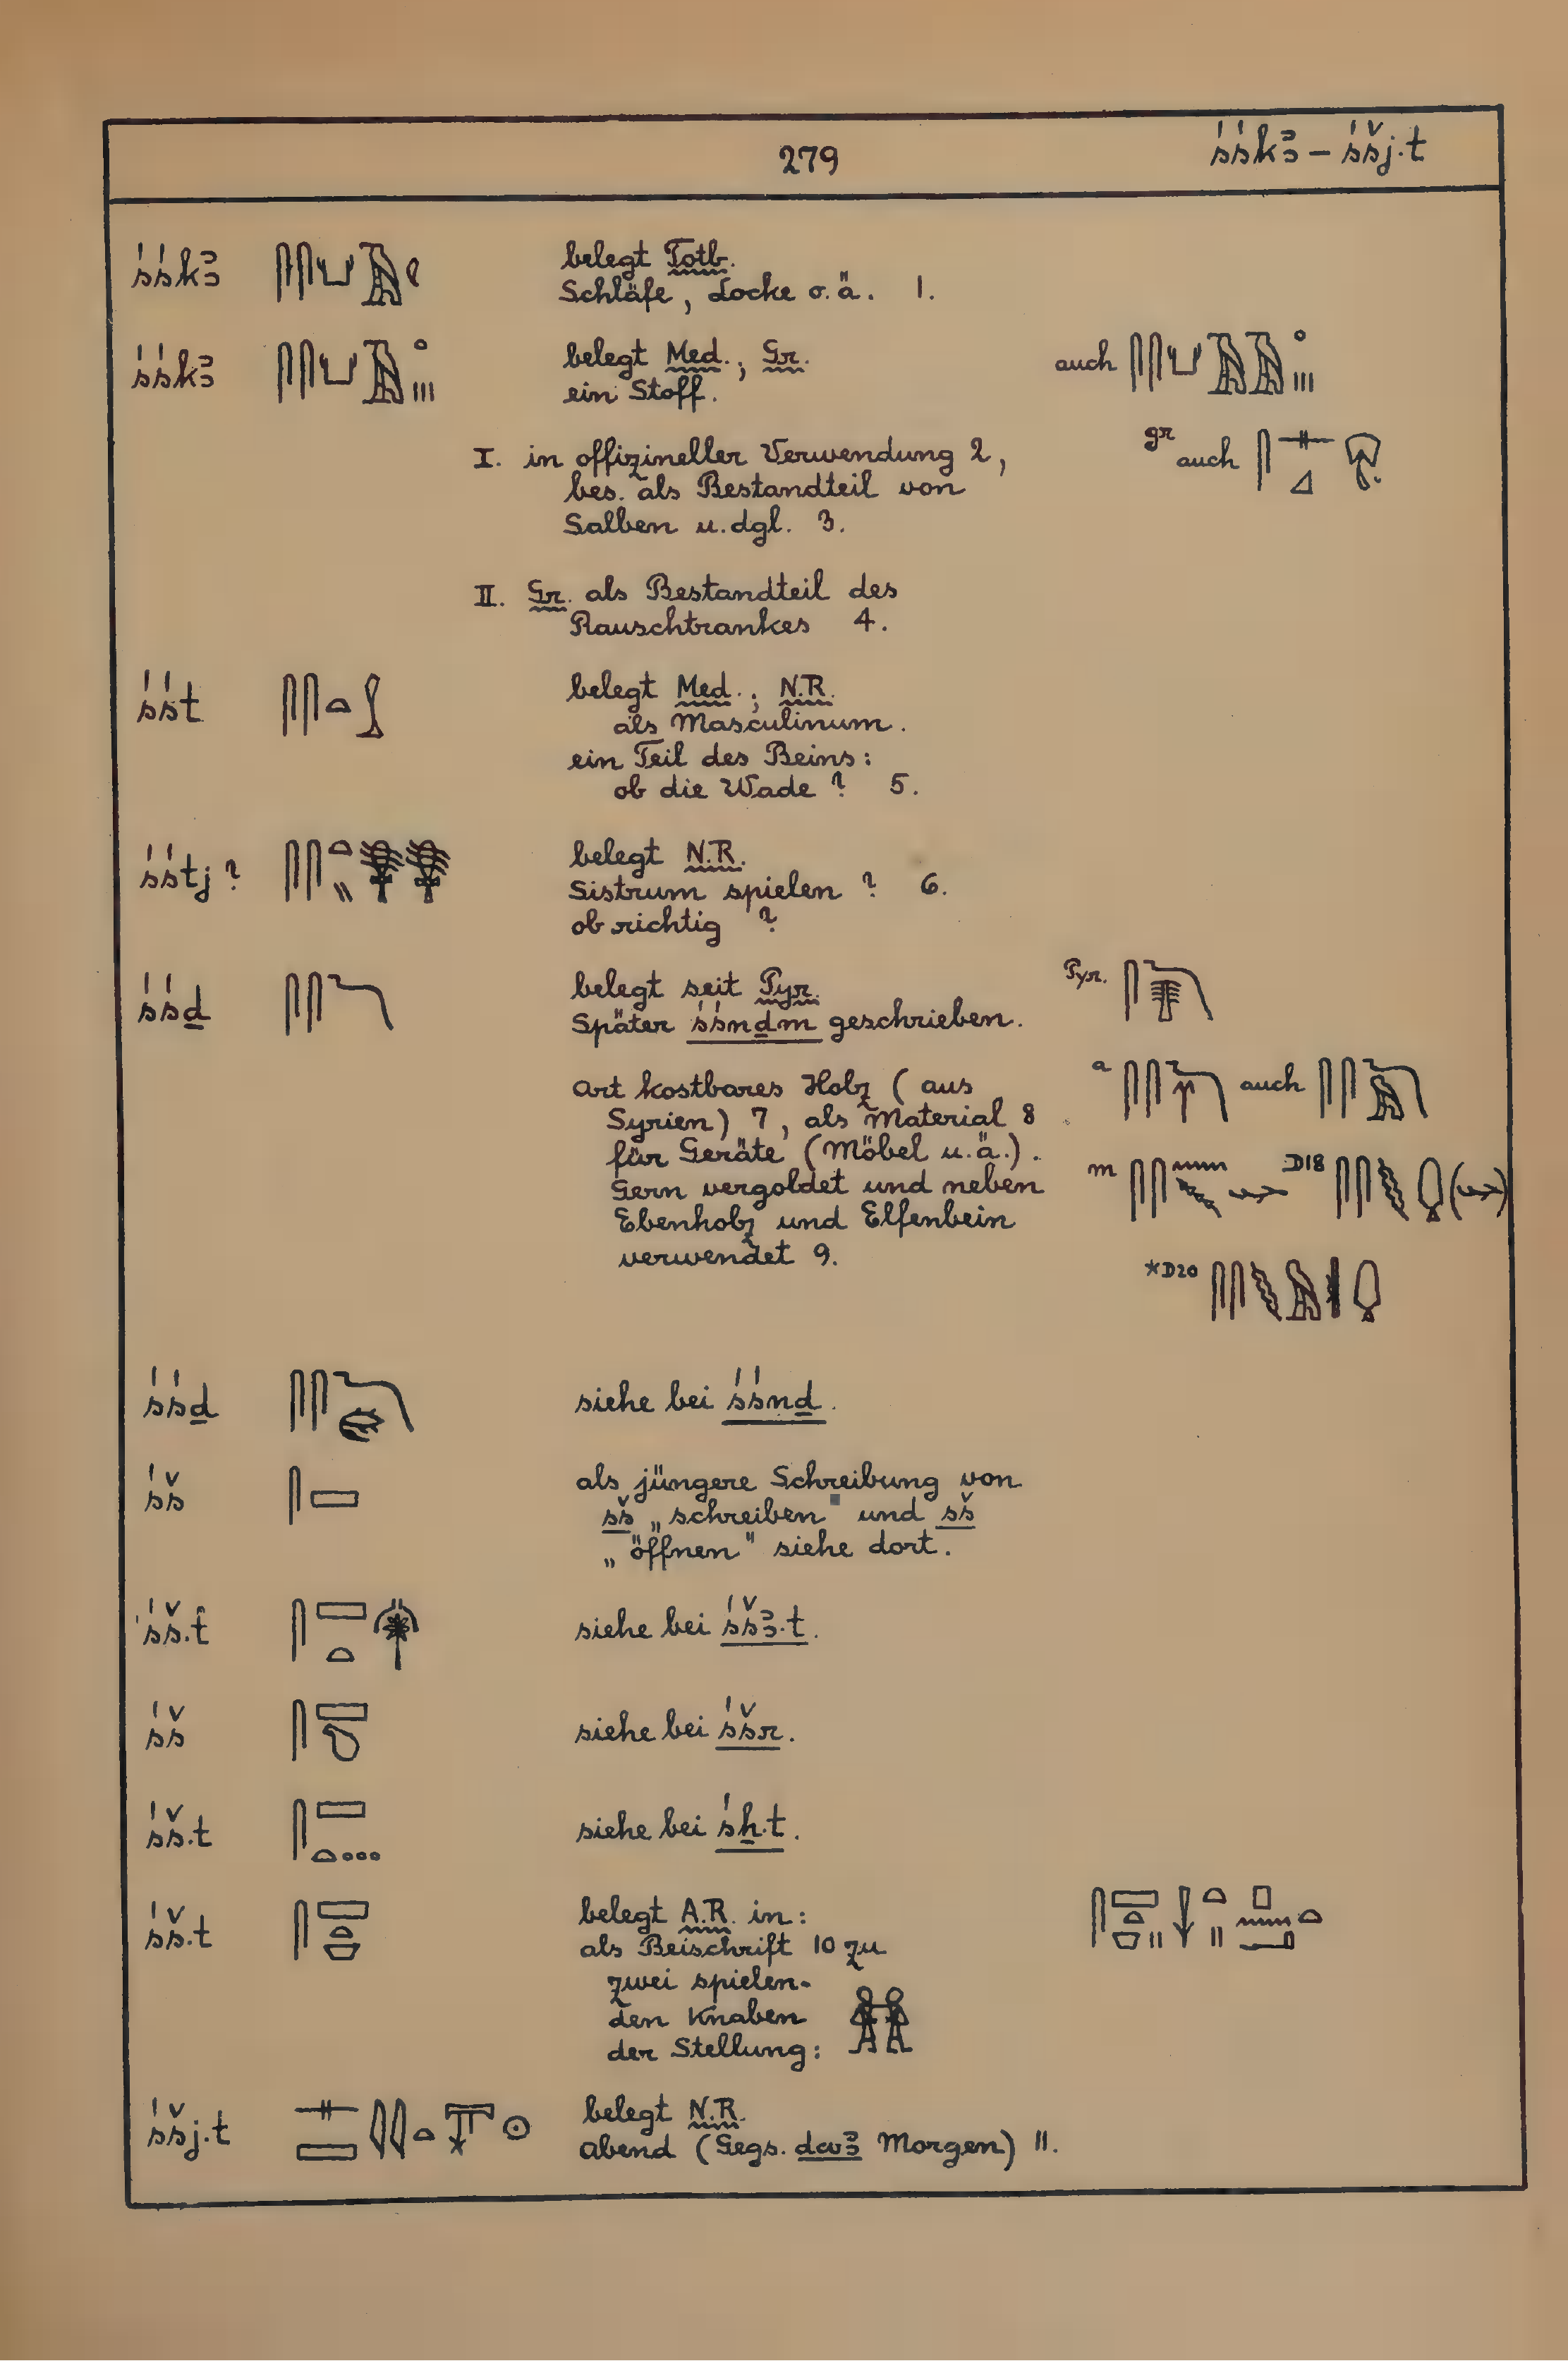 279
śśkꜣ – śšj.t
śśkꜣ
belegt Totb.
Schläfe, Locke o.ä. 1.
śśkꜣ
belegt Med.; Gr.
ein Stoff.
auch
gr auch
I. in offizineller Verwendung 2,
bes. als Bestandteil von
Salben u. dgl. 3.
II. Gr. als Bestandteil des
Rauschtrankes 4.
śśt
belegt Med.; N.R.
als Masculinum.
ein Teil des Beins:
ob die Wade? 5.
śśtj?
belegt N.R.
Sistrum spielen? 6.
ob richtig?
śśḏ
belegt seit Pyr.
Später śśnḏm geschrieben.
Pyr.
Art kostbares Holz (aus
Syrien) 7, als Material 8
für Geräte (Möbel u.ä.).
Gern vergoldet und neben
Ebenholz und Elfenbein
verwendet 9.
a auch
m D18
*D20
śśḏ
siehe bei śśnḏ.
śš
als jüngere Schreibung von
sš „schreiben" und sš
„öffnen" siehe dort.
śš.t
siehe bei śšꜣ.t.
śš
siehe bei śšr.
śš.t
siehe bei śẖ.t.
śš.t
belegt A.R. in:
als Beischrift 10 zu
zwei spielen-
den Knaben
der Stellung:
śšj.t
belegt N.R.
Abend (Gegs. dwꜣ Morgen) 11.